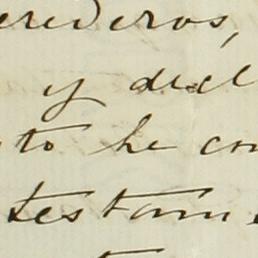 erederos,
y decl
to he con
testam